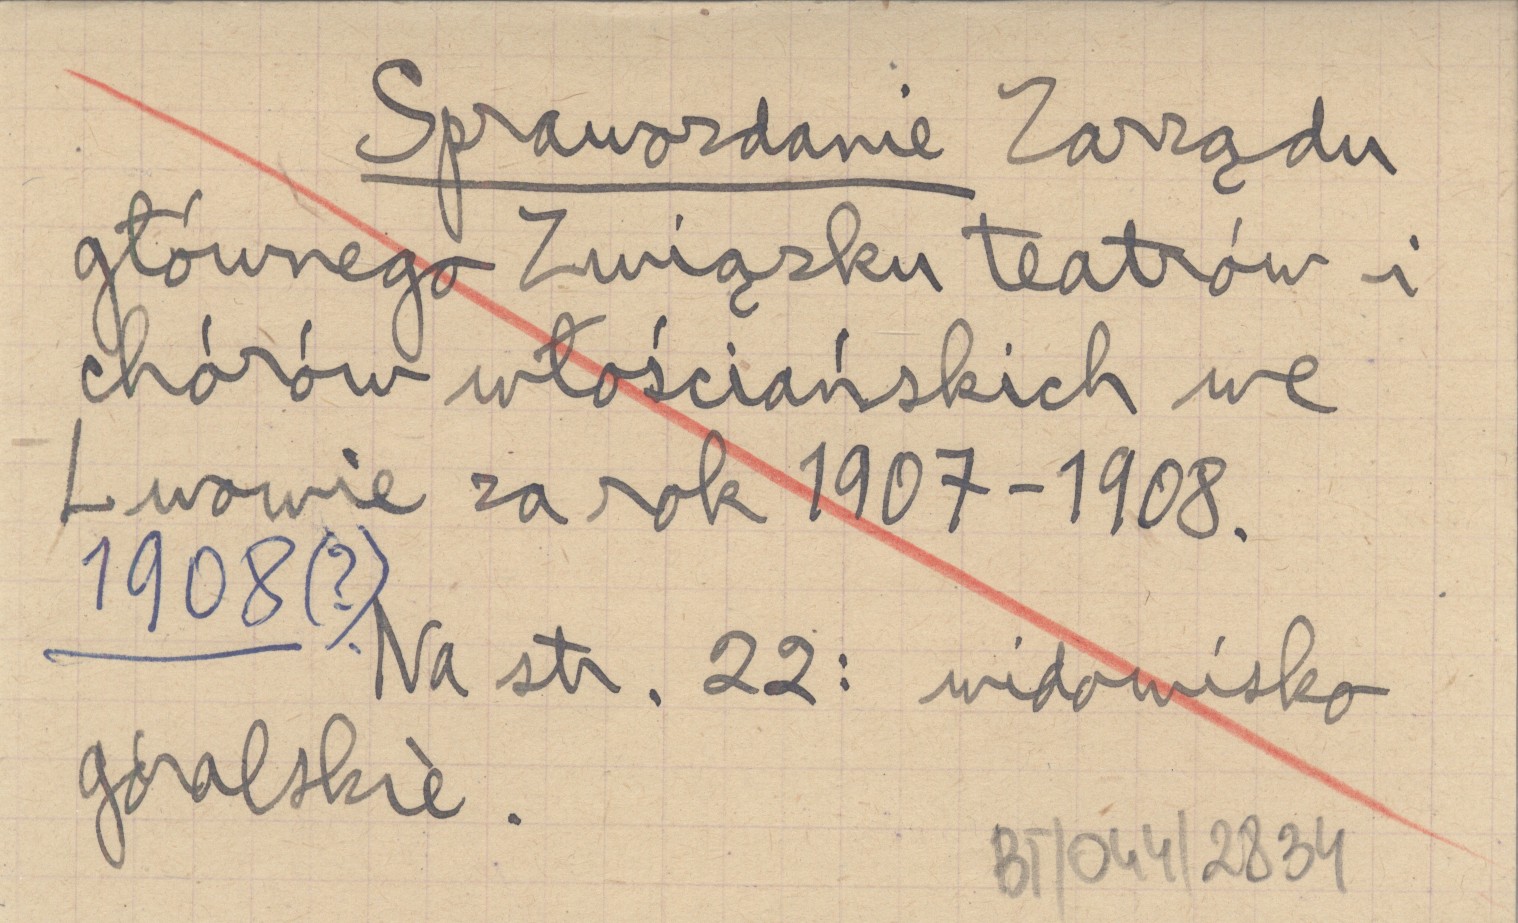 Sprawozdanie Zarządu
głównego Związku teatrów i
chórów włościańskich we
Lwowie za rok 1907-1908.
1908(?).
Na str. 22: widowisko
góralskie.
BT/044/2834